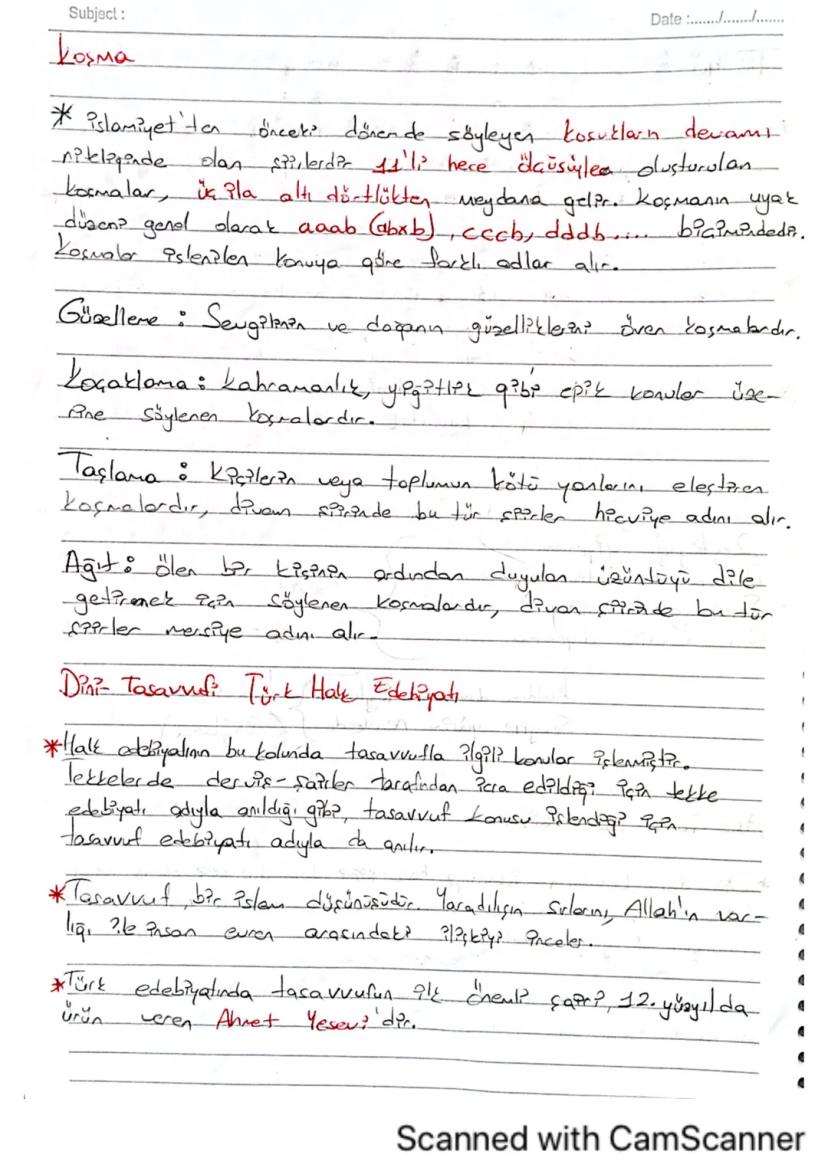 Subject :
Date :......./......./.......
Koşma
* İslamiyet'ten önceki dönemde söyleyen koşukların devamı
niteliğinde olan şiirlerdir 11'li hece ölçüsüyle oluşturulan
koşmalar, üç ila altı dörtlükten meydana gelir. Koşmanın uyak
düzeni genel olarak aaab (abxb), cccb, dddb.... biçimindedir.
Koşmalar işlenilen konuya göre farklı adlar alır.
Güzelleme : Sevgilinin ve doğanın güzelliklerini öven koşmalardır.
Koçaklama : Kahramanlık, yiğitlik gibi epik konular üze-
rine söylenen koşmalardır.
Taşlama : Kişilerin veya toplumun kötü yanlarını eleştiren
koşmalardır, divan şiirinde bu tür şiirler hicviye adını alır.
Ağıt : Ölen bir kişinin ardından duyulan üzüntüyü dile
getirmek için söylenen koşmalardır, divan şiirinde bu tür
şiirler mersiye adını alır.
Dini- Tasavvufi Türk Halk Edebiyatı
* Halk edebiyatının bu kolunda tasavvufla ilgili konular işlenmiştir.
Tekkelerde derviş-şairler tarafından icra edildiği için tekke
edebiyatı adıyla anıldığı gibi, tasavvuf konusu işlendiği için
tasavvuf edebiyatı adıyla da anılır.
* Tasavvuf, bir islam düşünüşüdür. Yaradılışın sırlarını, Allah'ın var-
lığı ile insan evren arasındaki ilişkiyi inceler.
* Türk edebiyatında tasavvufun ilk önemli şairi, 12. yüzyılda
ürün veren Ahmet Yesevi'dir.
Scanned with CamScanner